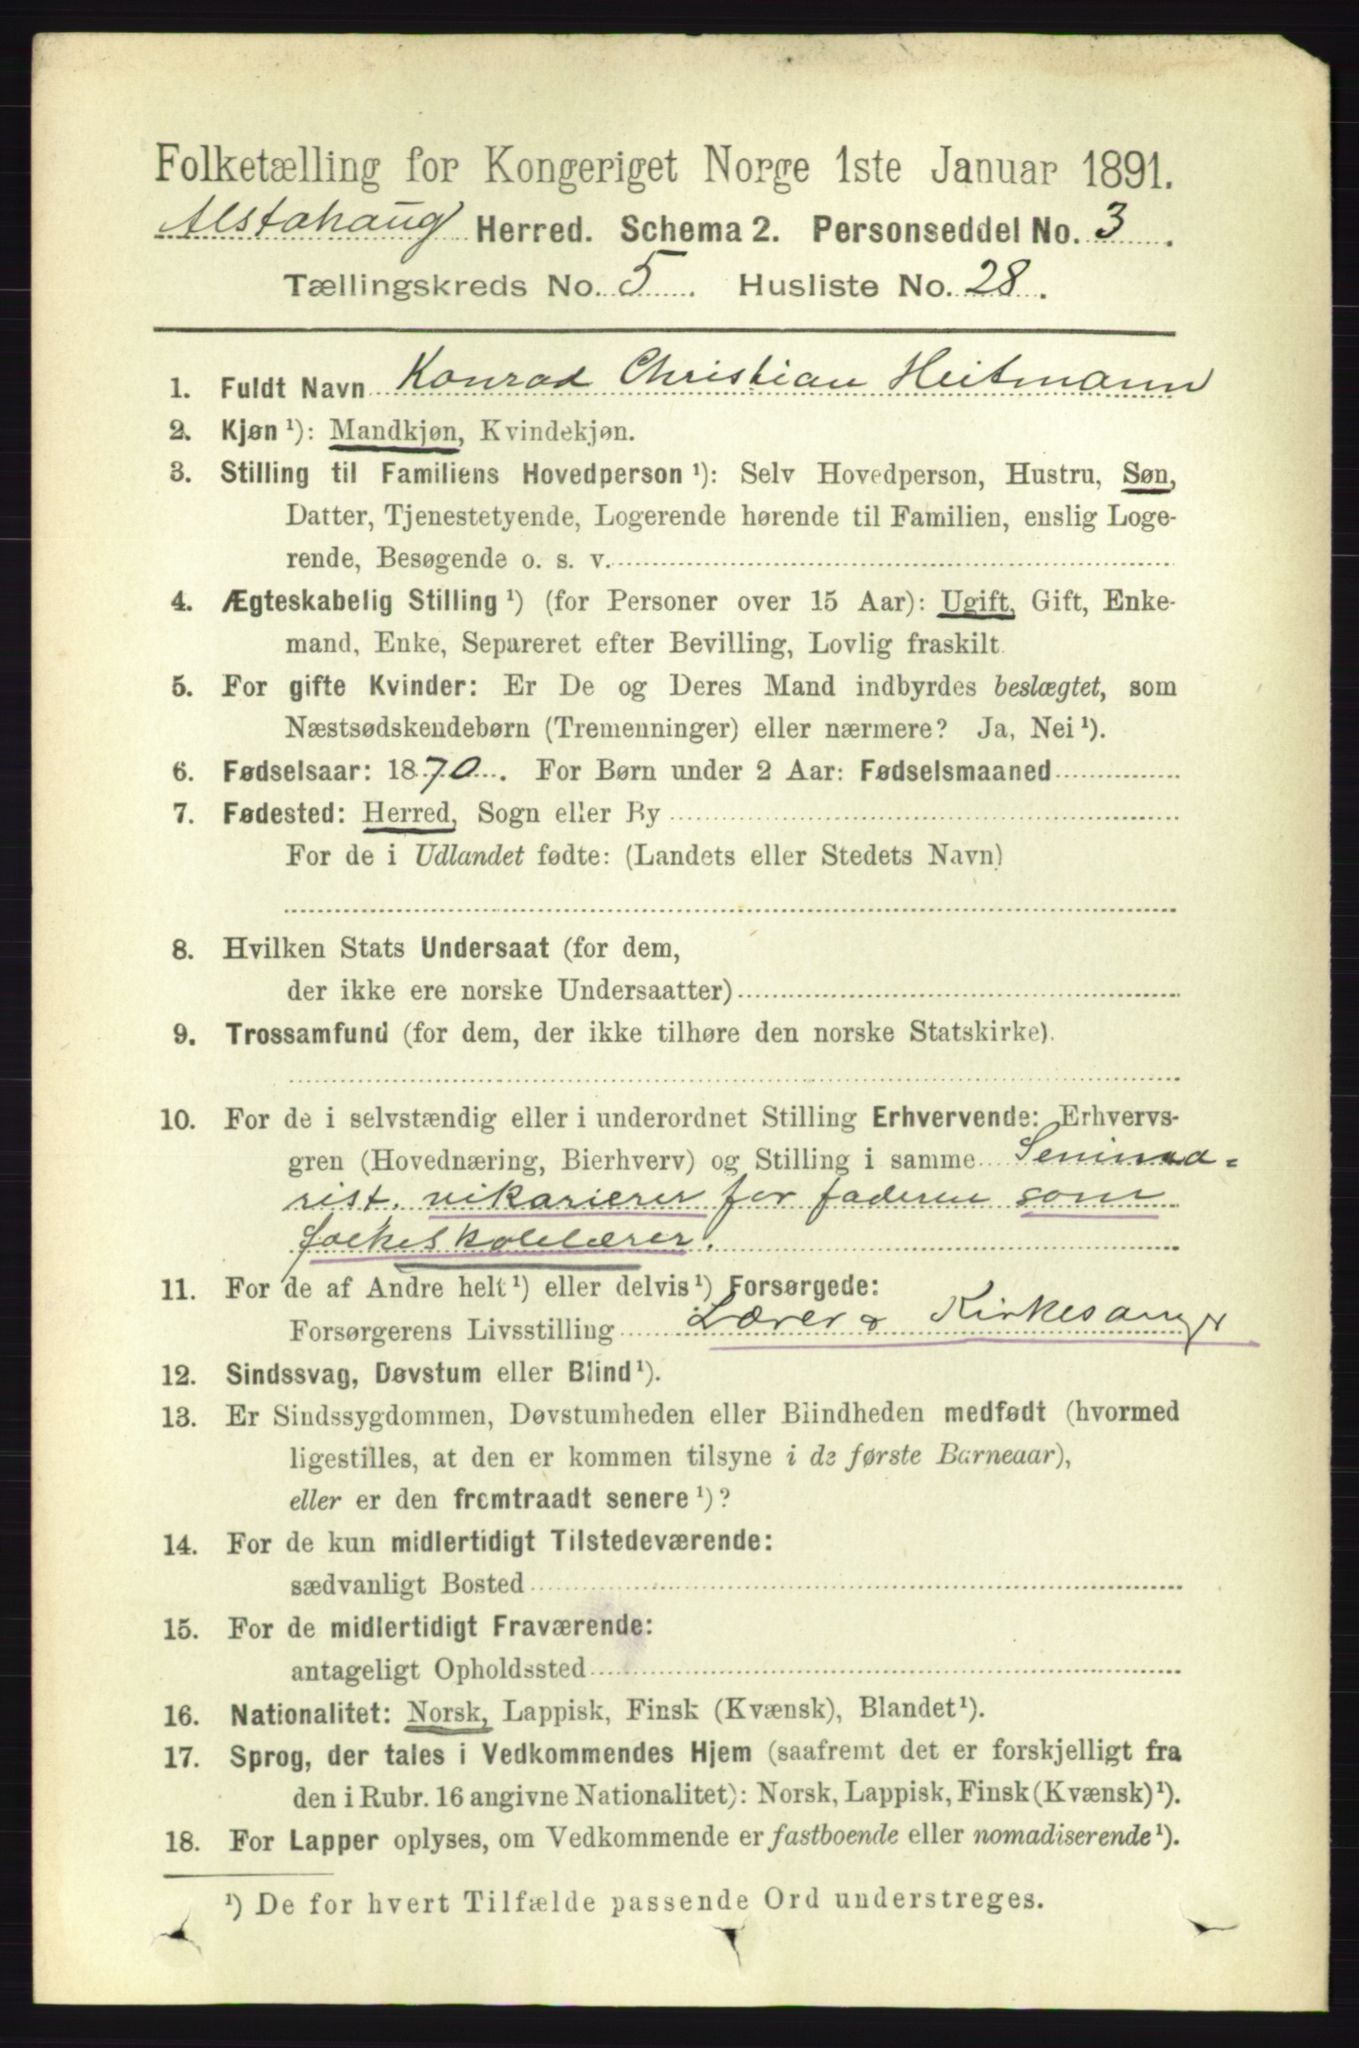 Folketælling for Kongeriget Norge 1ste Januar 1891.
Alstahaug Herred. Schema 2. Personseddel No. 3.
Tællingskreds No. 5. Husliste No. 28.
1. Fuldt Navn Konrad Christian Heitmann
2. Kjøn ¹): Mandkjøn, Kvindekjøn.
3. Stilling til Familiens Hovedperson ¹): Selv Hovedperson, Hustru, Søn,
Datter, Tjenestetyende, Logerende hørende til Familien, enslig Loge-
rende, Besøgende o. s. v.
4. Ægteskabelig Stilling ¹) (for Personer over 15 Aar): Ugift, Gift, Enke-
mand, Enke, Separeret efter Bevilling, Lovlig fraskilt.
5. For gifte Kvinder: Er De og Deres Mand indbyrdes beslægtet, som
Næstsødskendebørn (Tremenninger) eller nærmere? Ja, Nei ¹).
6. Fødselsaar: 1870. For Børn under 2 Aar: Fødselsmaaned
7. Fødested: Herred, Sogn eller By
For de i Udlandet fødte: (Landets eller Stedets Navn)
8. Hvilken Stats Undersaat (for dem,
der ikke ere norske Undersaatter)
9. Trossamfund (for dem, der ikke tilhøre den norske Statskirke).
10. For de i selvstændig eller i underordnet Stilling Erhvervende: Erhvervs-
gren (Hovednæring, Bierhverv) og Stilling i samme Semina=
rist. vikarierer for faderen som
folkeskolelærer.
11. For de af Andre helt ¹) eller delvis ¹) Forsørgede:
Forsørgerens Livsstilling Lærer & Kirkesanger
12. Sindssvag, Døvstum eller Blind ¹).
13. Er Sindssygdommen, Døvstumheden eller Blindheden medfødt (hvormed
ligestilles, at den er kommen tilsyne i de første Barneaar),
eller er den fremtraadt senere ¹)?
14. For de kun midlertidigt Tilstedeværende:
sædvanligt Bosted
15. For de midlertidigt Fraværende:
antageligt Opholdssted
16. Nationalitet: Norsk, Lappisk, Finsk (Kvænsk), Blandet ¹).
17. Sprog, der tales i Vedkommendes Hjem (saafremt det er forskjelligt fra
den i Rubr. 16 angivne Nationalitet): Norsk, Lappisk, Finsk (Kvænsk) ¹).
18. For Lapper oplyses, om Vedkommende er fastboende eller nomadiserende ¹).
¹) De for hvert Tilfælde passende Ord understreges.